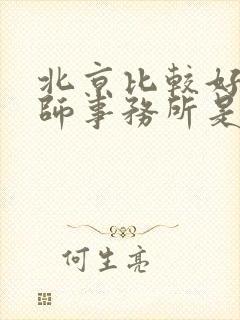 北京比較好
師事務所是
何生亮